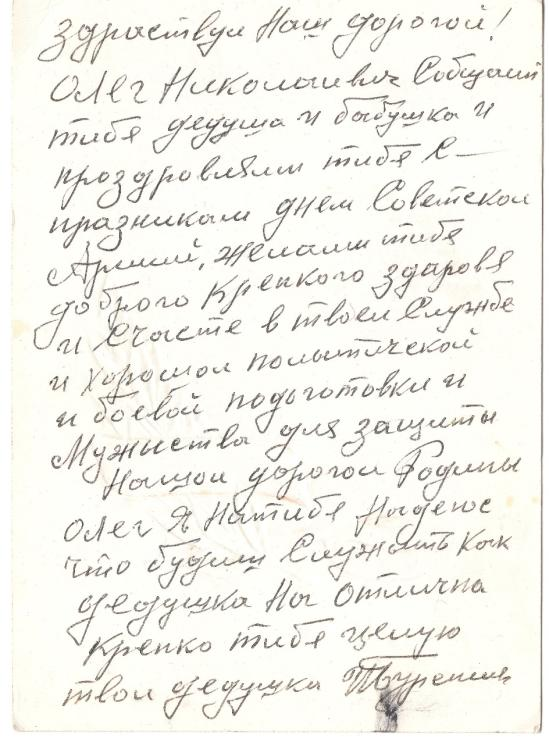 Здраствуй Наш дорогой!
Олег Николаивич Сообщаит
тибе дедуша и бабушка и
проздровляим тибе С-
празником днем Советской
Армий, желаим тибе
доброго Крепкого здаровя
и Счасте в твоей Службе
и хорошои политической
и боевой подготовки и
Мужиства для защиты
Нашои дорогои Родины
Олег Я На тибя Надеюс
что будиш Служить как
дедушка На Отлична
Крепко тибе целую
твои дедушка